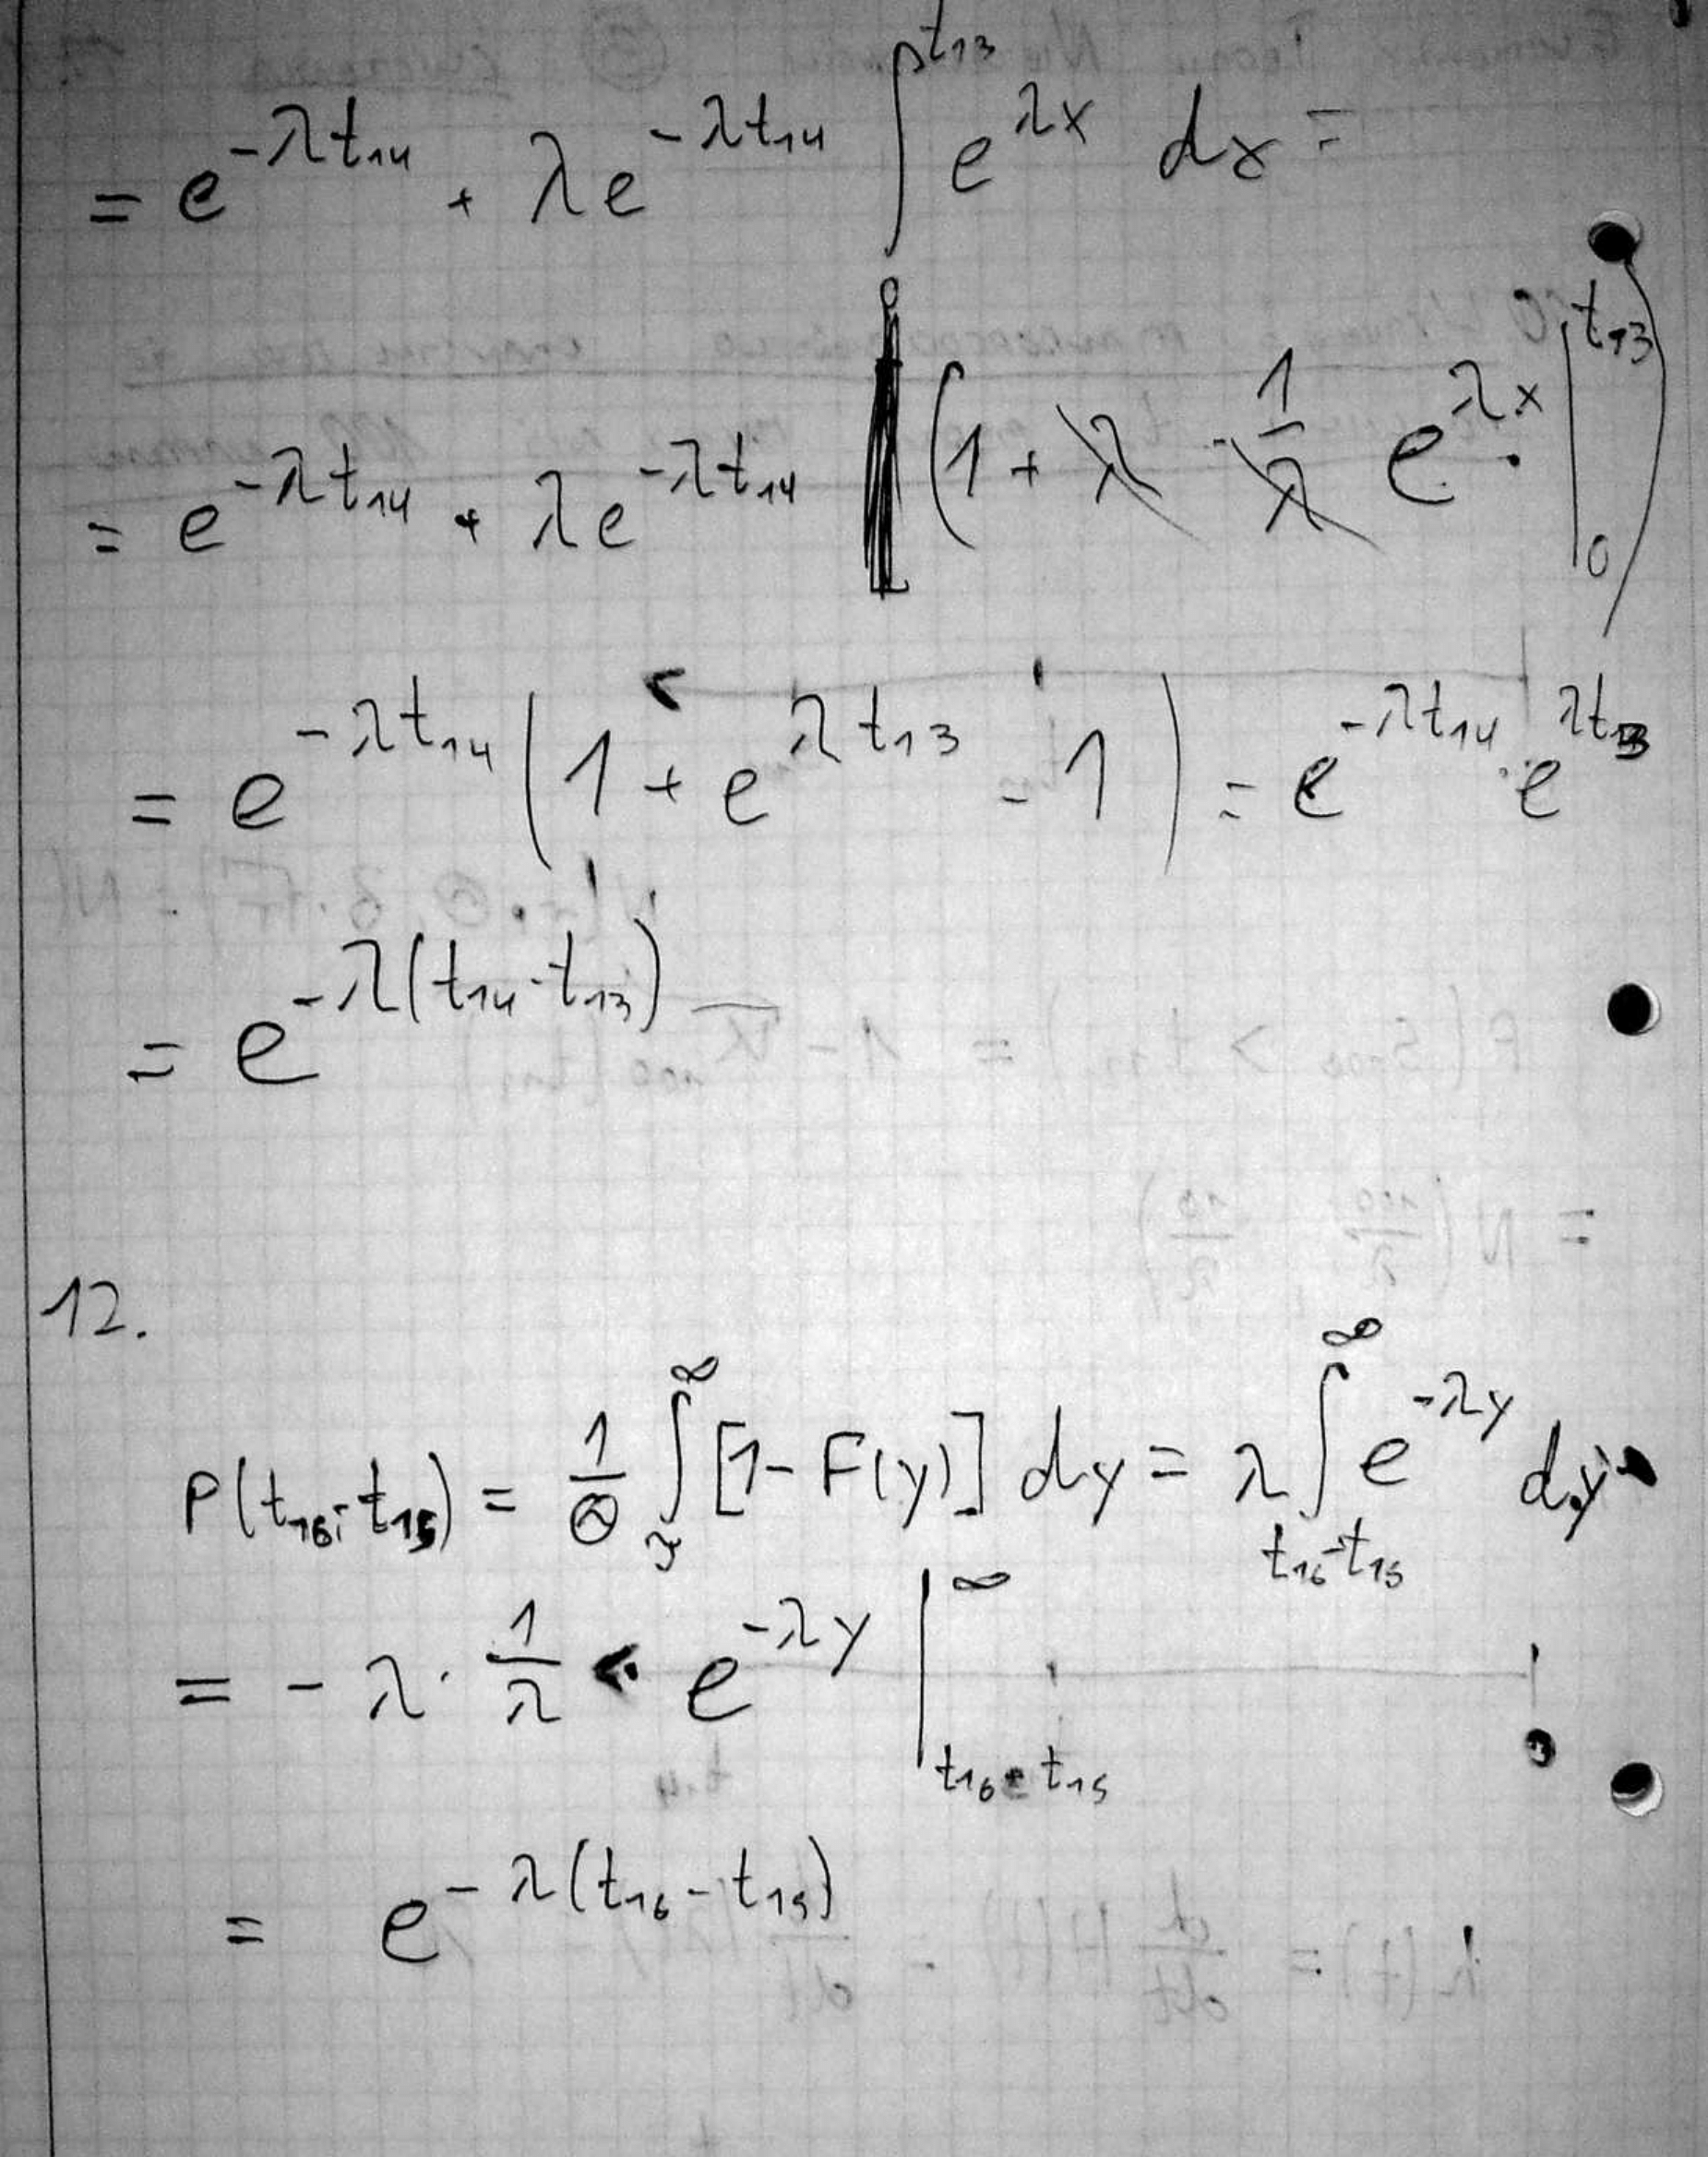 = e^{-λt_{14}} + λe^{-λt_{14}} ∫_0^{t_{13}} e^{λx} dx =
= e^{-λt_{14}} + λe^{-λt_{14}} (1 + λ · 1/λ e^{λx} |_0^{t_{13}})
= e^{-λt_{14}} (1 + e^{λt_{13}} - 1) = e^{-λt_{14}} · e^{λt_{13}}
= e^{-λ(t_{14} - t_{13})}
12.
P(t_{16}; t_{15}) = 1/Θ ∫^∞ [1 - F(y)] dy = λ ∫_{t_{16} - t_{15}}^∞ e^{-λy} dy
= - λ · 1/λ · e^{-λy} |_{t_{16} - t_{15}}^∞
= e^{-λ(t_{16} - t_{15})}